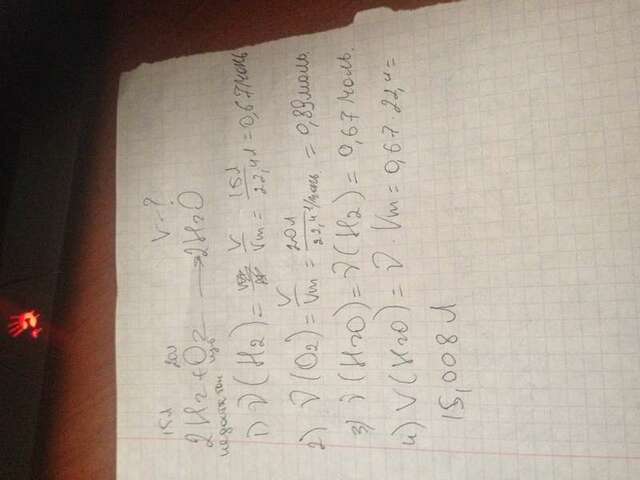 15л 20л V-?
2H₂+O₂ ⟶ 2H₂O
недостаток изб
1) ν(H₂)= V/Vm = 15л/22,4л =0,67моль
2) ν(O₂)= V/Vm = 20л/22,4л/моль = 0,89моль.
3) ν(H₂O)=ν(H₂)= 0,67моль.
4) V(H₂O)= ν·Vm = 0,67·22,4=
15,008л